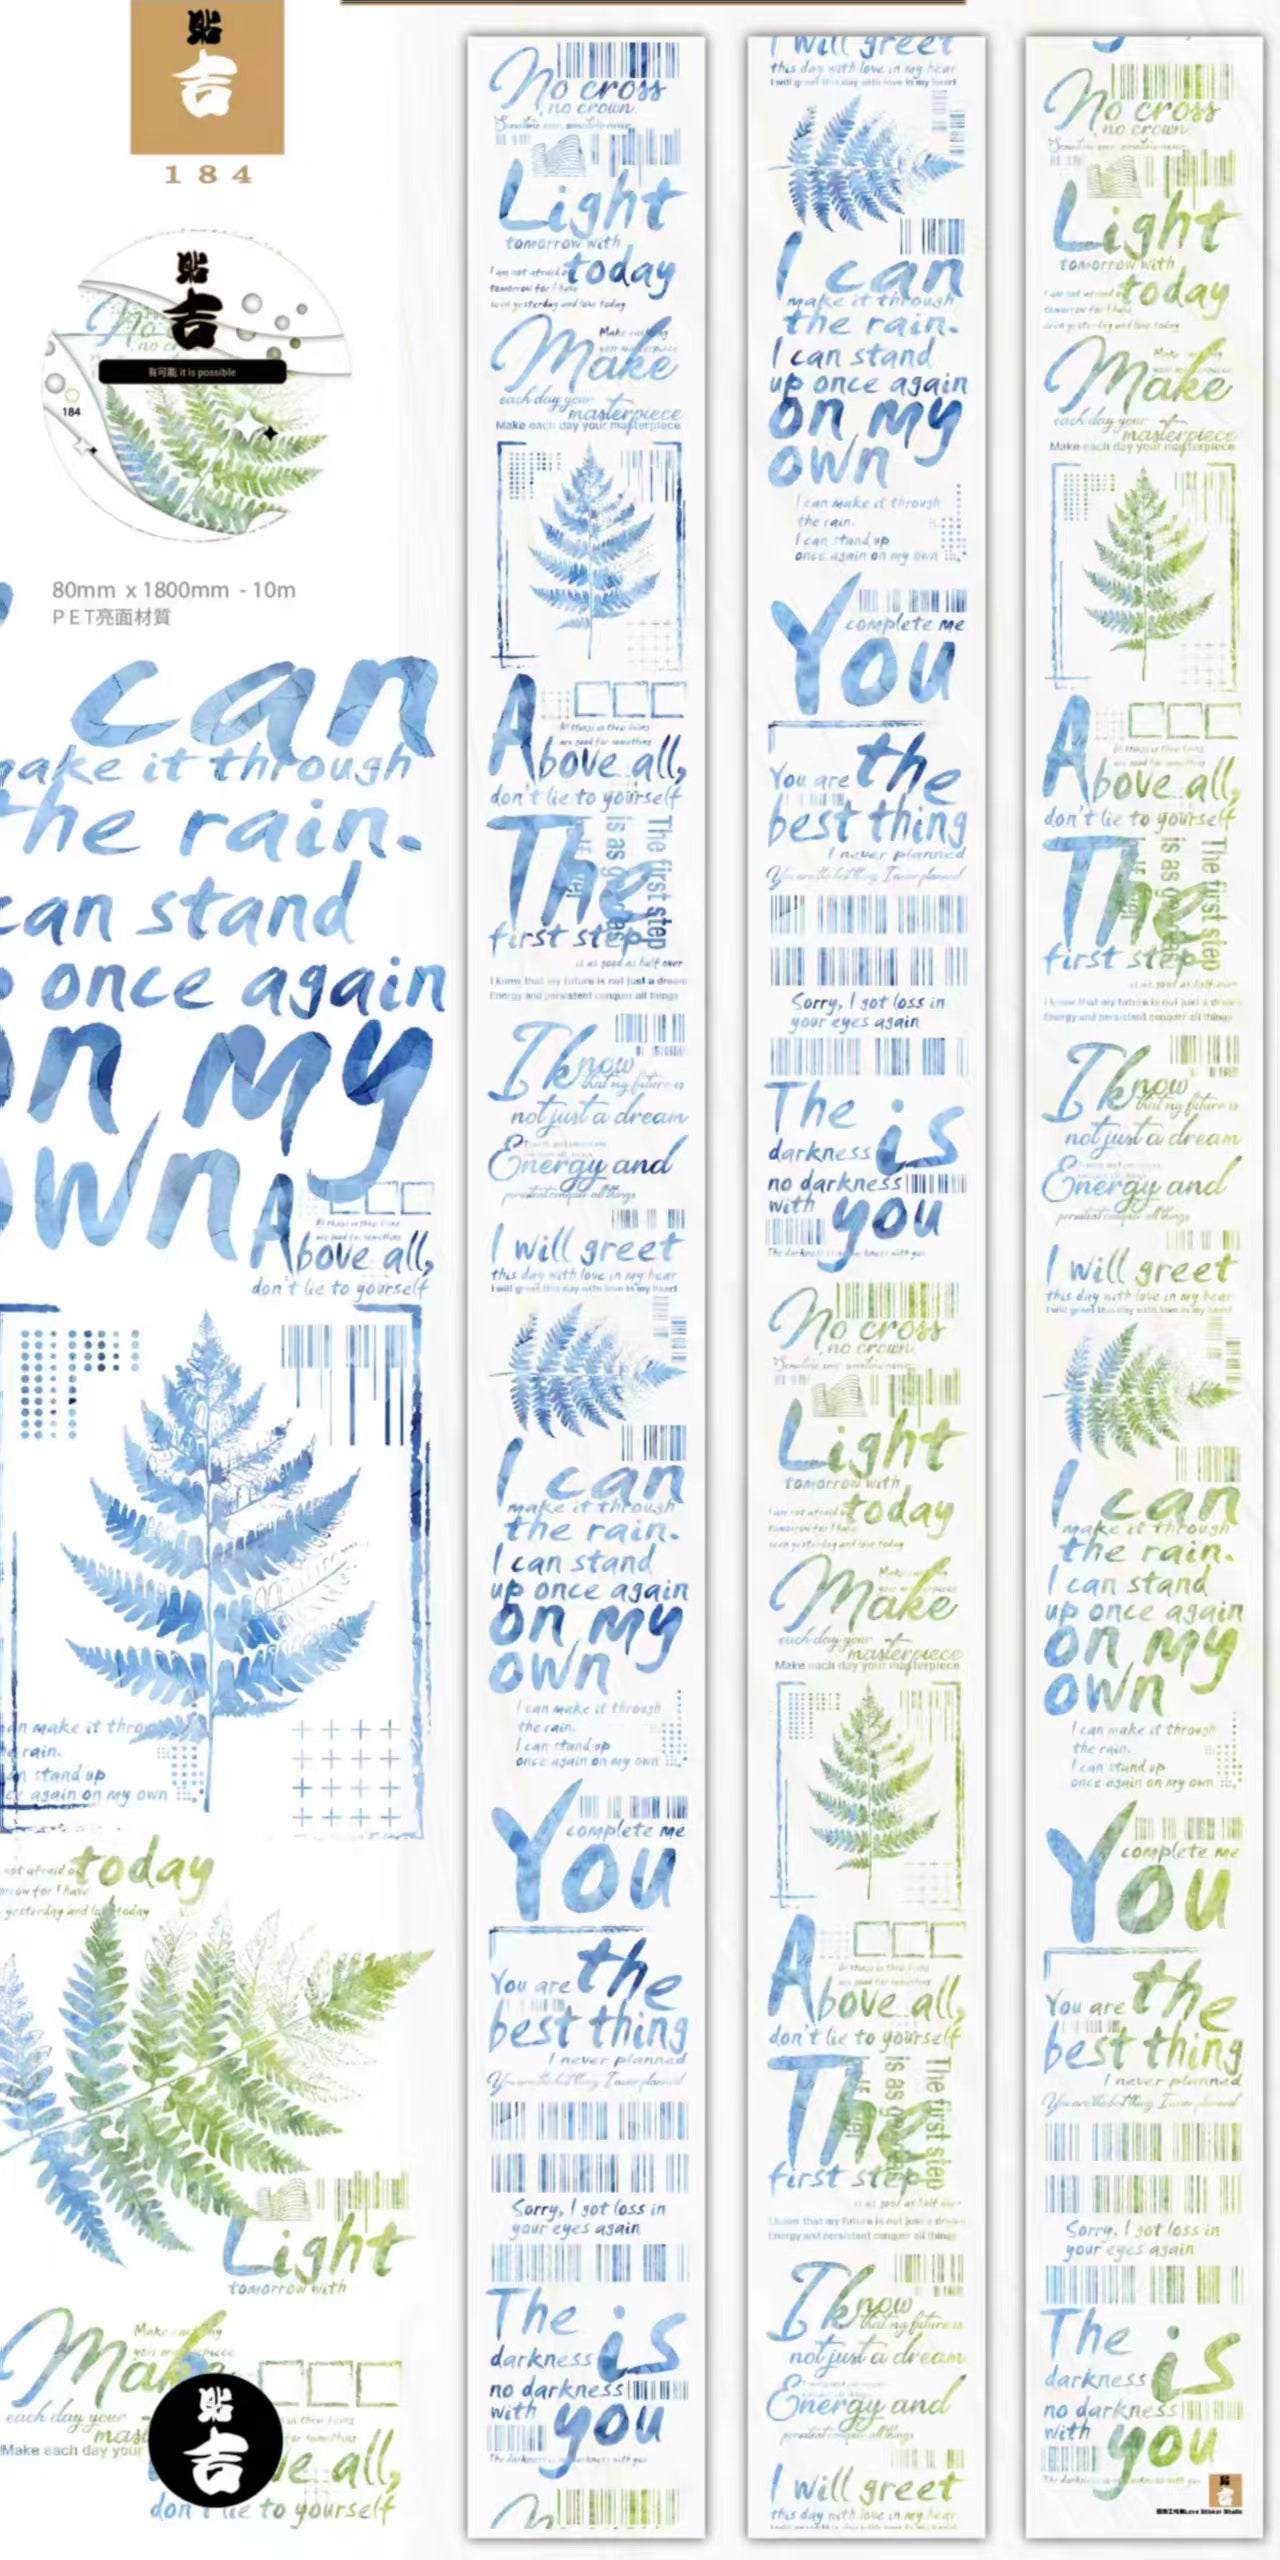 貼
吉
184
貼
吉
有可能 it is possible
184
80mm x 1800mm - 10m
PET亮面材質
can
make it through
the rain.
can stand
once again
on my
own
Above all,
don't lie to yourself
today
Light
tomorrow with
Make
each day your
Make each day your
all,
don't lie to yourself
貼
吉
No cross
no crown.
Light
tomorrow with
today
I am not afraid of
tomorrow for I have
seen yesterday and love today
Make
each day your
masterpiece
Make each day your masterpiece
Above all,
don't lie to yourself
The
first step
The first step
is as good as half over
I know that my future is not just a dream
Energy and persistent conquer all things
I know
that my future is
not just a dream
Energy and
persistent conquer all things
I will greet
this day with love in my hear
I will greet this day with love in my heart
I can
make it through
the rain.
I can stand
up once again
on my
own
I can make it through
the rain.
I can stand up
once again on my own
You
complete me
You are the
best thing
I never planned
You are the best thing I never planned
Sorry, I got loss in
your eyes again
The
darkness is
no darkness
with you
I will greet
this day with love in my hear
I will greet this day with love in my heart
I can
make it through
the rain.
I can stand
up once again
on my
own
I can make it through
the rain.
I can stand up
once again on my own
You
complete me
You are the
best thing
I never planned
You are the best thing I never planned
Sorry, I got loss in
your eyes again
The
darkness is
no darkness
with you
No cross
no crown.
Light
tomorrow with
today
Make
each day your
masterpiece
Make each day your masterpiece
Above all,
don't lie to yourself
The
first step
The first step
I know that my future is not just a dream
Energy and persistent conquer all things
I know
that my future is
not just a dream
Energy and
persistent conquer all things
I will greet
this day with love in my hear
No cross
no crown.
Light
tomorrow with
today
Make
each day your
masterpiece
Make each day your masterpiece
Above all,
don't lie to yourself
The
first step
The first step
I know that my future is not just a dream
Energy and persistent conquer all things
I know
that my future is
not just a dream
Energy and
persistent conquer all things
I will greet
this day with love in my hear
I will greet this day with love in my heart
I can
make it through
the rain.
I can stand
up once again
on my
own
I can make it through
the rain.
I can stand up
once again on my own
You
complete me
You are the
best thing
I never planned
You are the best thing I never planned
Sorry, I got loss in
your eyes again
The
darkness is
no darkness
with you
Love Sticker Studio